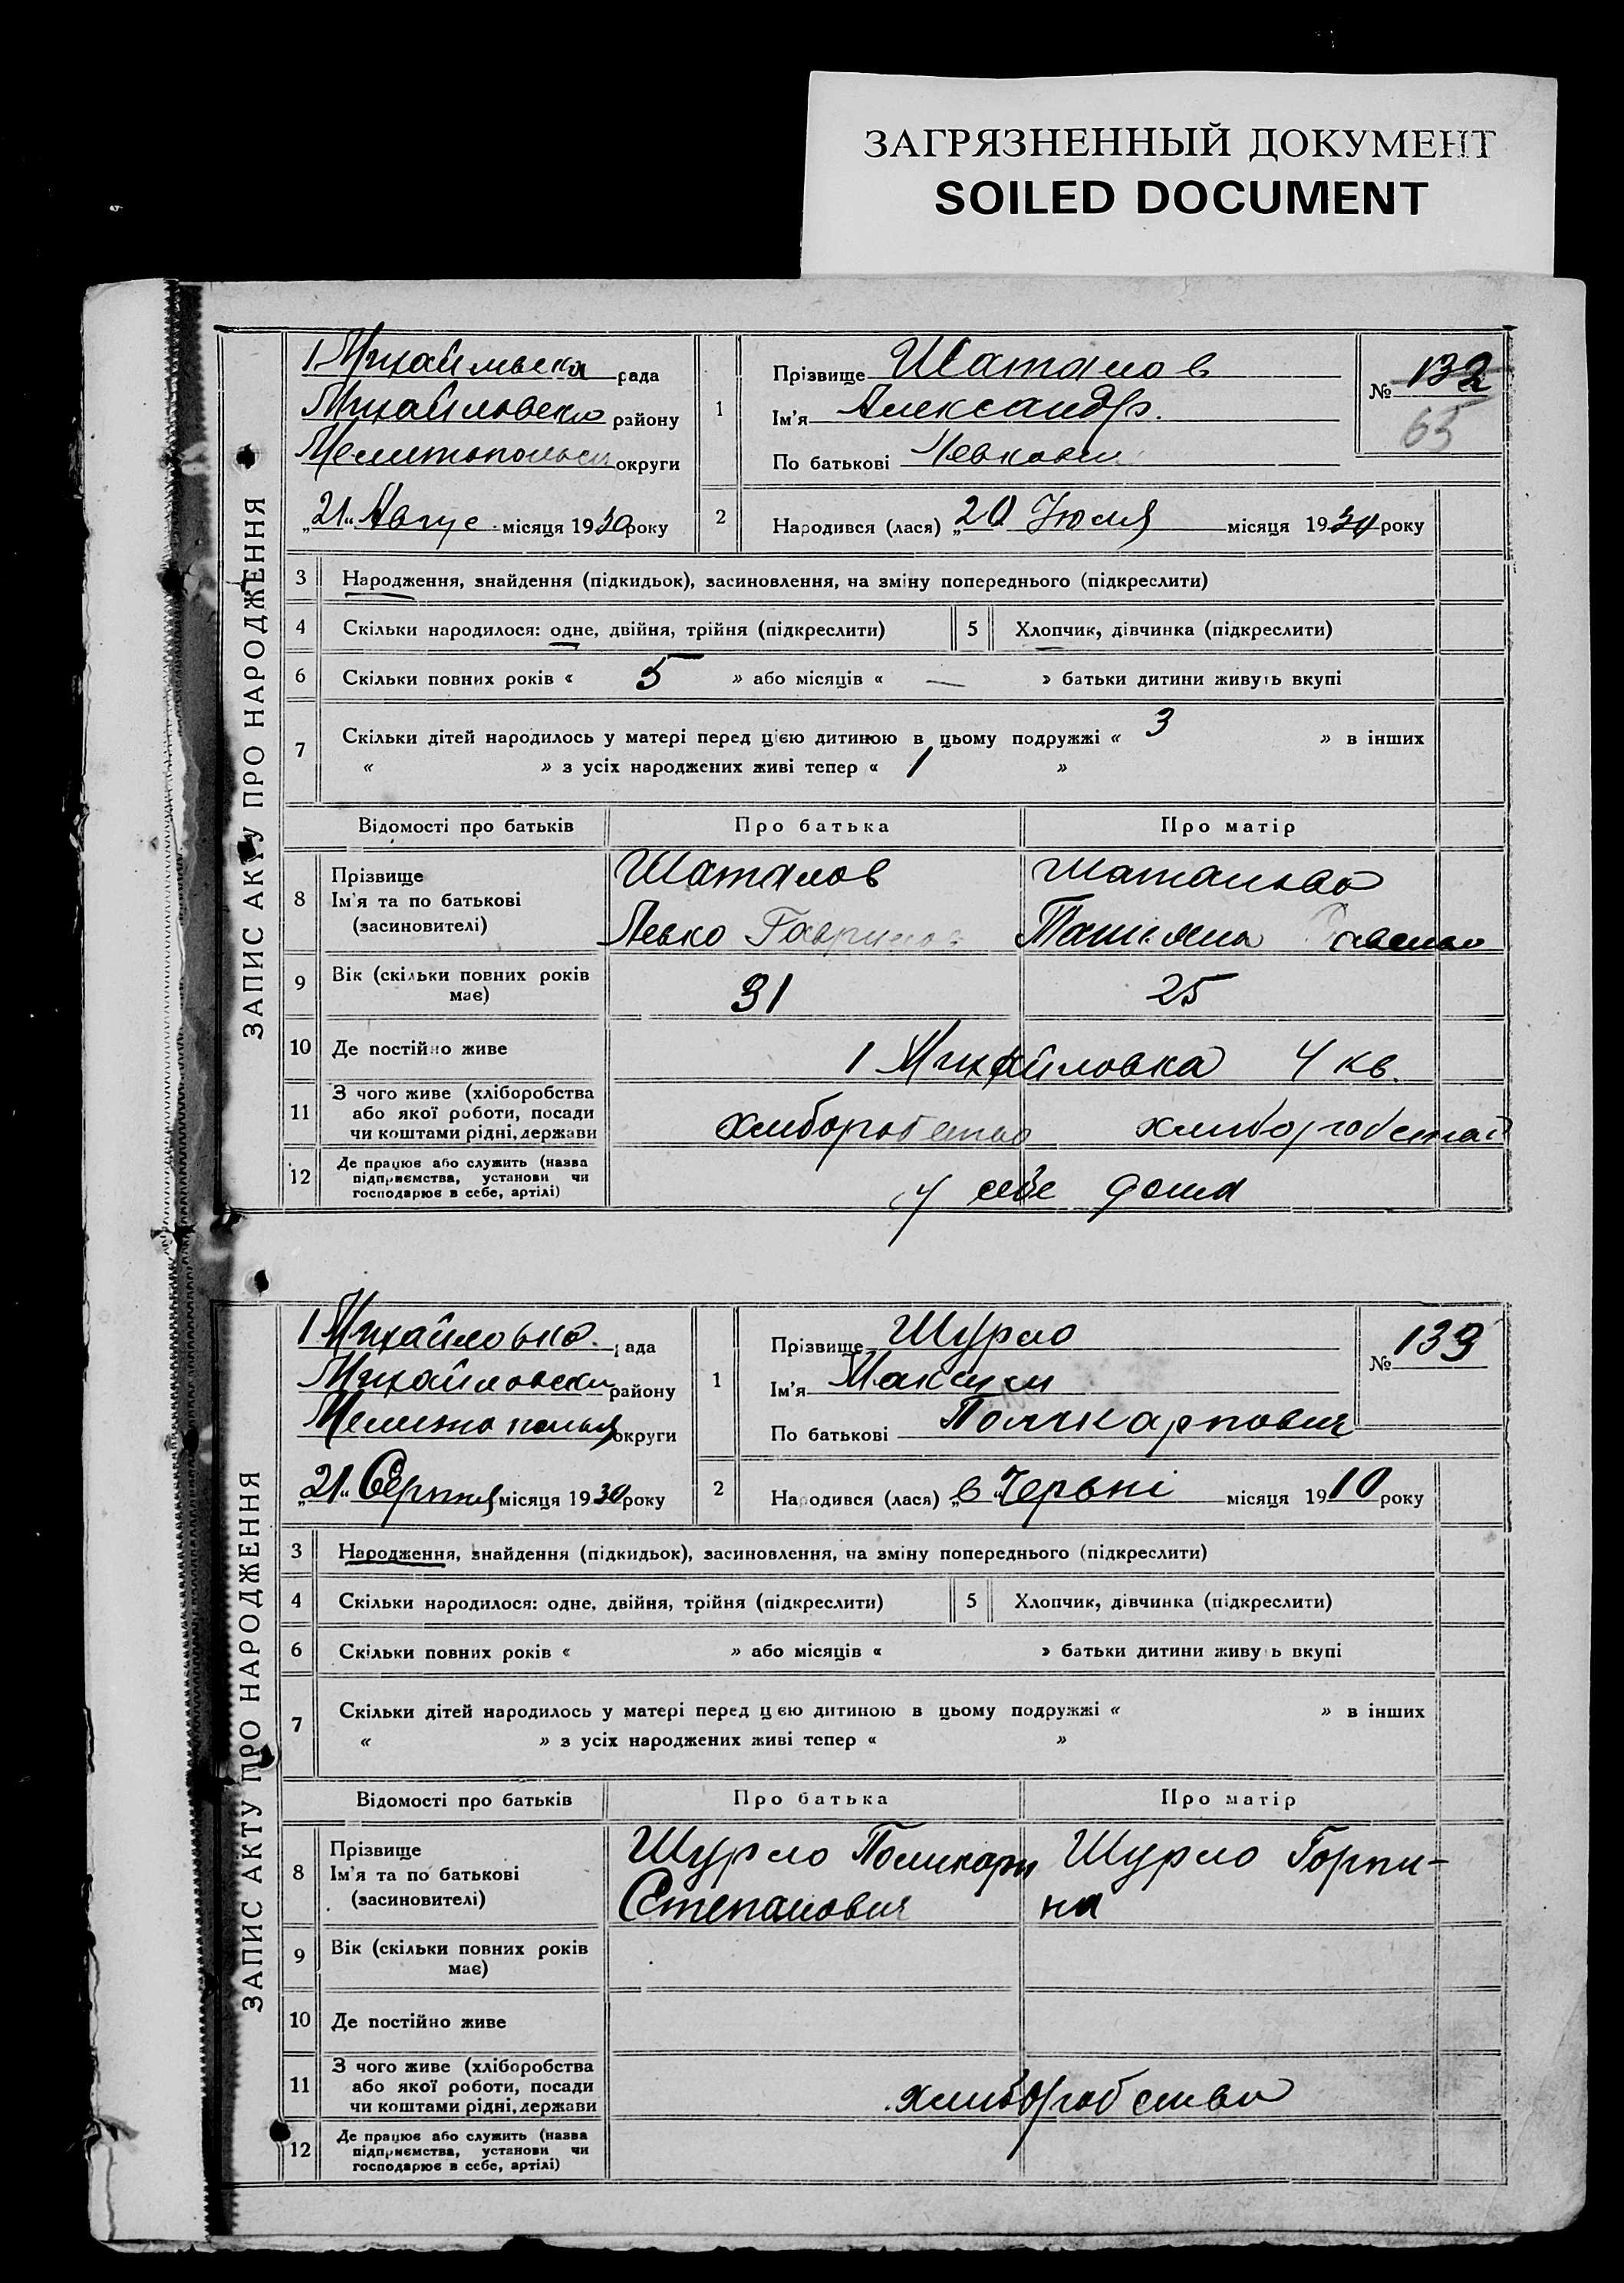 ЗАГРЯЗНЕННЫЙ ДОКУМЕНТ
SOILED DOCUMENT
ЗАПИС АКТУ ПРО НАРОДЖЕННЯ
1 Михайлвска рада
Михайловско району
Мелитопольск округи
„21“ Авгус місяця 1930 року
1
Прізвище Шаталов
Ім'я Александр.
По батькові Левкович
№ 132
65
2
Народився (лася) „20 Июля місяця 1930 року
3 Народження, знайдення (підкидьок), засиновлення, на зміну попереднього (підкреслити)
4 Скільки народилося: одне, двійня, трійня (підкреслити) 5 Хлопчик, дівчинка (підкреслити)
6 Скільки повних років « 5 » або місяців « — » батьки дитини живуть вкупі
7 Скільки дітей народилось у матері перед цією дитиною в цьому подружжі « 3 » в інших
« » з усіх народжених живі тепер « 1 »
Відомості про батьків Про батька Про матір
8 Прізвище
Ім'я та по батькові
(засновителі)
Шаталов
Левко Гаврилов
Шаталова
Татияна
9 Вік (скільки повних років
має)
31 25
10 Де постійно живе 1 Михайловка 4 кв.
11 З чого живе (хліборобства
або якої роботи, посади
чи коштами рідні, держави
хлиборобство
12 Де працює або служить (назва
підприємства, установи чи
господарює в себе, артілі)
у себе дома
ЗАПИС АКТУ ПРО НАРОДЖЕННЯ
1 Михайловка. рада
Михайловски району
округи
„21“ Серпня місяця 1930 року
1
Прізвище Шурло
Ім'я Максим
По батькові Поликарпович
№ 133
2
Народився (лася) „в “ Червні місяця 1910 року
3 Народження, знайдення (підкидьок), засиновлення, на зміну попереднього (підкреслити)
4 Скільки народилося: одне, двійня, трійня (підкреслити) 5 Хлопчик, дівчинка (підкреслити)
6 Скільки повних років « » або місяців « » батьки дитини живуть вкупі
7 Скільки дітей народилось у матері перед цією дитиною в цьому подружжі « » в інших
« » з усіх народжених живі тепер « »
Відомості про батьків Про батька Про матір
8 Прізвище
Ім'я та по батькові
(засиновителі)
Шурло Поликарп
Степанович
Шурло Горпи-
на
9 Вік (скільки повних років
має)
10 Де постійно живе
11 З чого живе (хліборобства
або якої роботи, посади
чи коштами рідні, держави
хлиборобства
12 Де працює або служить (назва
підприємства, установи чи
господарює в себе, артілі)